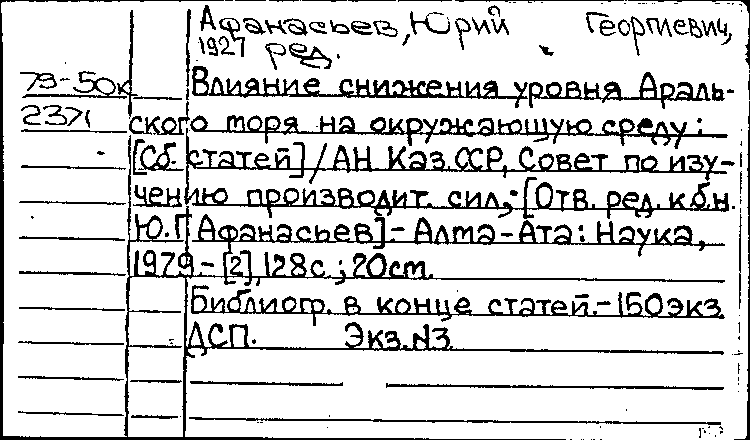 Афанасьев, Юрий Георгиевич,
1927 ред.
79-50к Влияние снижения уровня Араль-
2371 ского моря на окружающую среду:
[Сб. статей] / АН Каз.ССР, Совет по изу-
чению производит. сил,; [Отв. ред. к.б.н.
Ю.Г Афанасьев].- Алма-Ата: Наука,
1979.- [2], 128с.; 20ст.
Библиогр. в конце статей.- 150экз
ДСП. Экз.N3